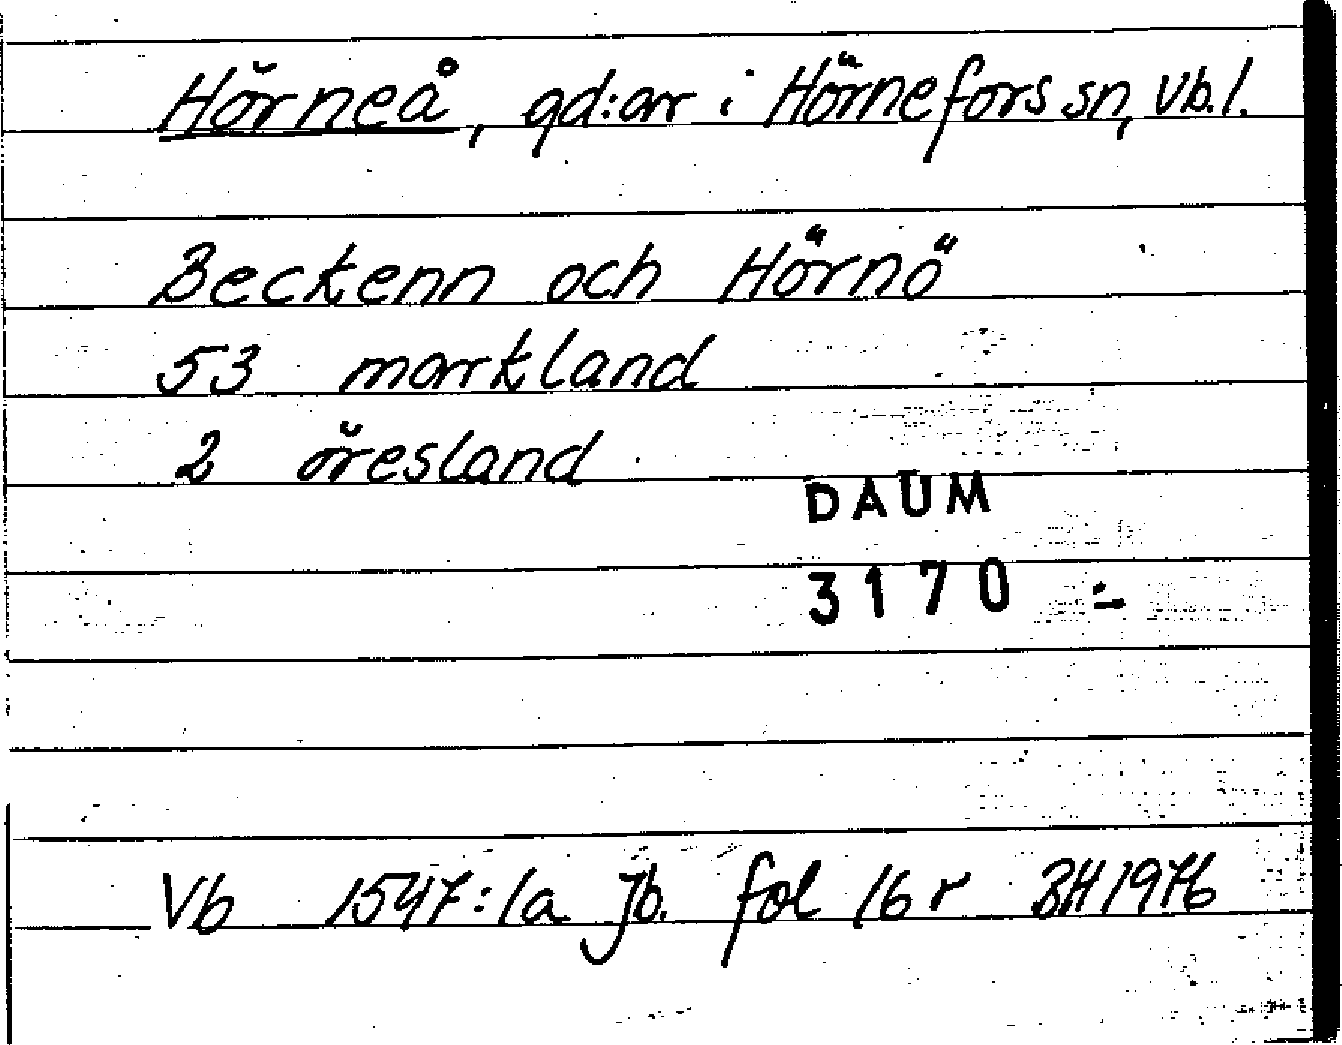 Hörneå, gd:ar i Hörnefors sn, Vb.l.
Beckenn och Hörnö
53 markland
2 öresland
DAUM
3170
Vb 1547:1a jb. fol 16 r BH 1976